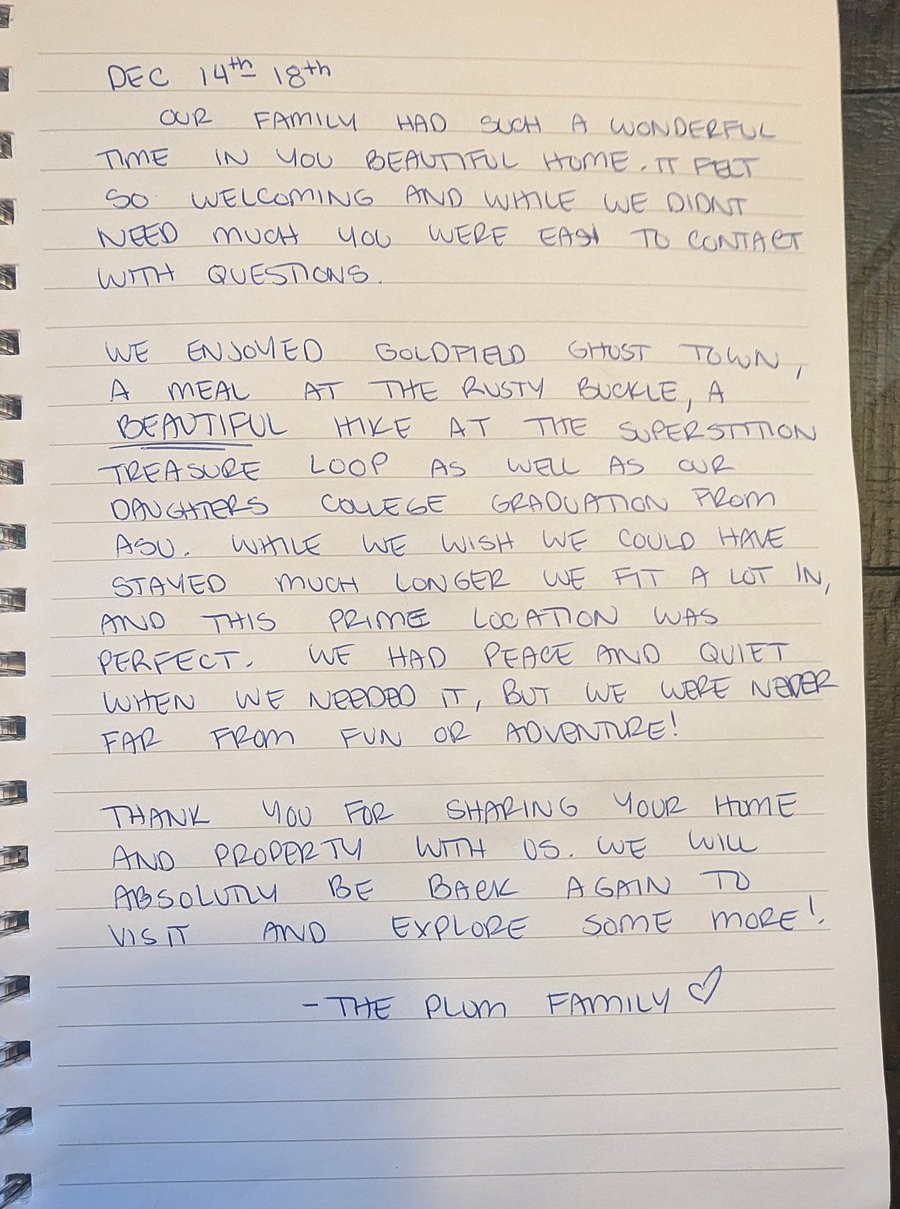 DEC 14th 18th
OUR FAMILY HAD SUCH A WONDERFUL
TIME IN YOU BEAUTIFUL HOME. IT FELT
SO WELCOMING AND WHILE WE DIDNT
NEED MUCH YOU WERE EASY TO CONTACT
WITH QUESTIONS.
WE ENJOYED GOLDFIELD GHOST TOWN,
A MEAL AT THE RUSTY BUCKLE, A
BEAUTIFUL HIKE AT THE SUPERSTITION
TREASURE LOOP AS WELL AS OUR
DAUGHTERS COLLEGE GRADUATION FROM
ASU. WHILE WE WISH WE COULD HAVE
STAYED MUCH LONGER WE FIT A LOT IN,
AND THIS PRIME LOCATION WAS
PERFECT. WE HAD PEACE AND QUIET
WHEN WE NEEDED IT, BUT WE WERE NEVER
FAR FROM FUN OR ADVENTURE!
THANK YOU FOR SHARING YOUR HOME
AND PROPERTY WITH US. WE WILL
ABSOLUTLY BE BACK AGAIN TO
VISIT AND EXPLORE SOME MORE!
- THE PLUM FAMILY ♡